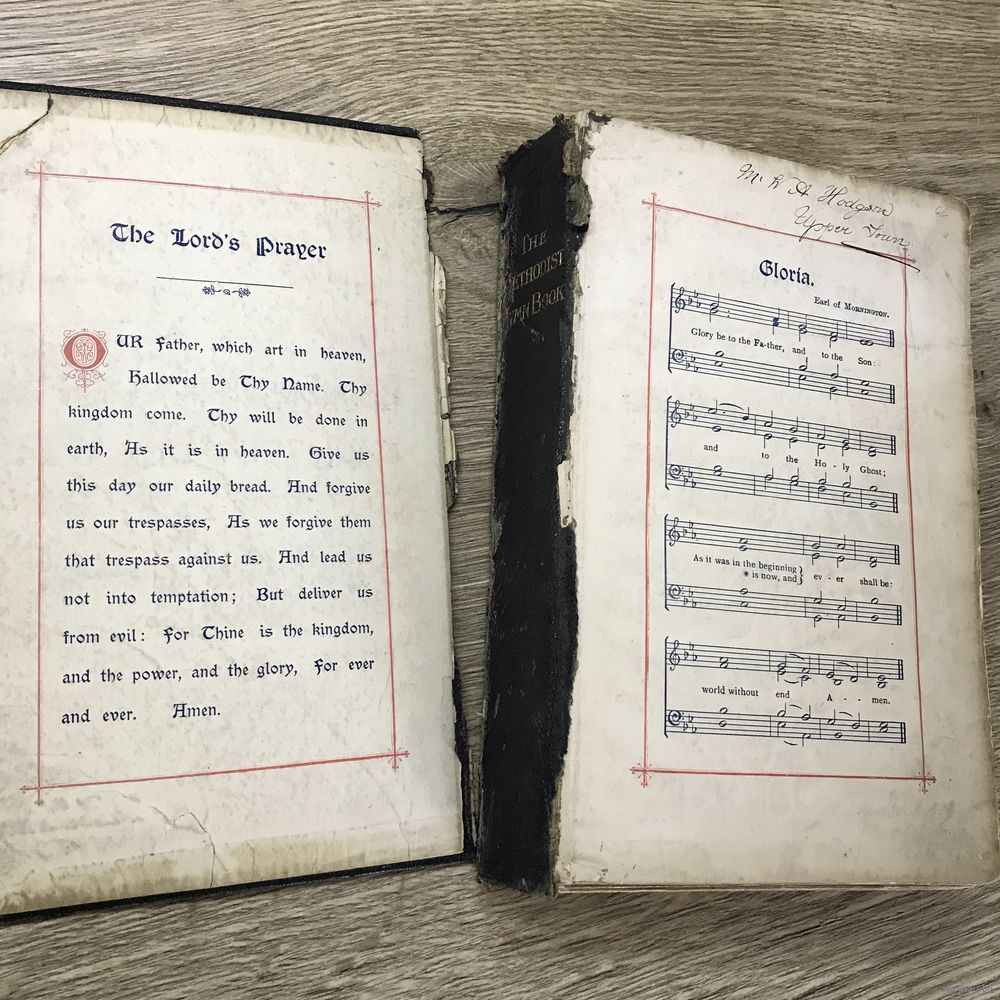 The Lord's Prayer
OUR Father, which art in heaven,
Hallowed be Thy Name. Thy
kingdom come. Thy will be done in
earth, As it is in heaven. Give us
this day our daily bread. And forgive
us our trespasses, As we forgive them
that trespass against us. And lead us
not into temptation; But deliver us
from evil: For Thine is the kingdom,
and the power, and the glory, For ever
and ever. Amen.
THE
METHODIST
HYMN BOOK
W A Hodgson
Upper Town
Gloria.
Earl of MORNINGTON.
Glory be to the Fa-ther, and to the Son:
and to the Ho - ly Ghost;
As it was in the beginning
* is now, and } ev - er shall be:
world without end A - - men.